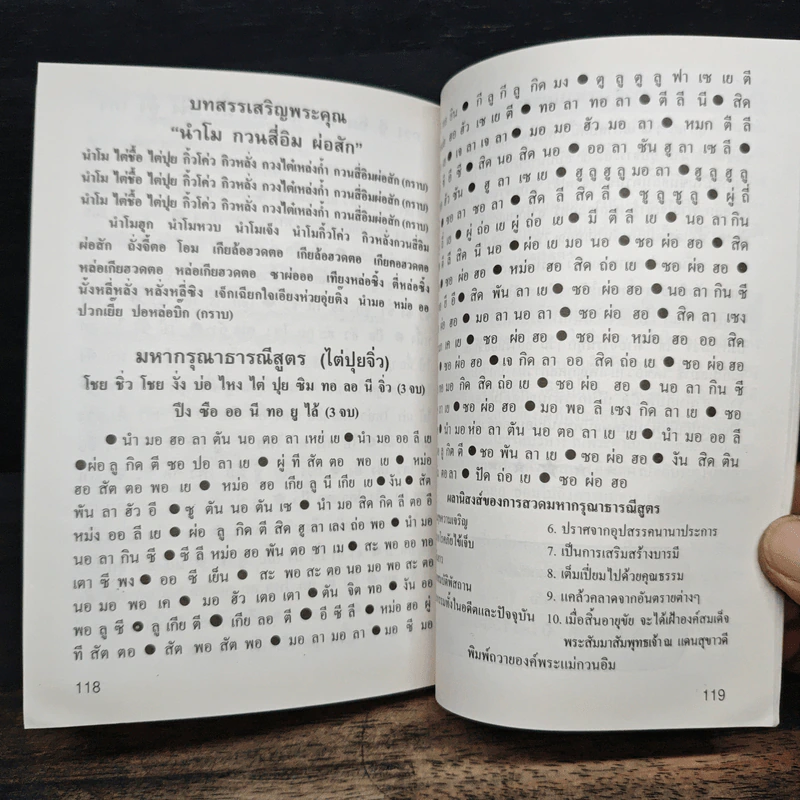 บทสรรเสริญพระคุณ
“นำโม กวนสี่อิม ผ่อสัก”
นำโม ไต่ชื้อ ไต่ปุย กิ้วโค่ว กิวหลั่ง กวงไต๋เหล่งก้ำ กวนสี่อิมผ่อสัก (กราบ)
นำโม ไต่ชื้อ ไต่ปุย กิ้วโค่ว กิวหลั่ง กวงไต๋เหล่งก้ำ กวนสี่อิมผ่อสัก (กราบ)
นำโม ไต่ชื้อ ไต่ปุย กิ้วโค่ว กิวหลั่ง กวงไต๋เหล่งก้ำ กวนสี่อิมผ่อสัก (กราบ)
นำโมฮุก นำโมหวบ นำโมเจ็ง นำโมกิ้วโค่ว กิวหลั่งกวนสี่อิม
ผ่อสัก ถั่งจี้ตอ โอม เกียล้อฮวดตอ เกียล้อฮวดตอ เกียคอฮวดตอ
หล่อเกียฮวดตอ หล่อเกียฮวดตอ ซาผ่อออ เทียงหล่อซิ้ง ตี่หล่อซิ้ง
นั้งหลี่หลั่ง หลั่งหลี่ซิง เจ็กเฉียกใจเอียงห่วยอุ่ยติ้ง นำมอ หม่อ ออ
ปวกเยี๊ย ปอหล่อบิ๊ก (กราบ)
มหากรุณาธารณีสูตร (ไต่ปุยจิ่ว)
โชย ชิ่ว โชย งั่ง บ่อ ไหง ไต่ ปุย ซิม ทอ ลอ นี จิ่ว (3 จบ)
ปึง ซือ ออ นี ทอ ยู ไล้ (3 จบ)
● นำ มอ ฮอ ลา ตัน นอ ตอ ลา เหย่ เย ● นำ มอ ออ ลี เย
● ผ่อ ลู กิด ตี ซอ ปอ ลา เย ● ผู่ ที สัต ตอ พอ เย ● หม่อ
ฮอ สัต ตอ พอ เย ● หม่อ ฮอ เกีย ลู นี เกีย เย ● งัน ● สัต
พัน ลา ฮัว อี ● ซู ตัน นอ ตัน เซ ● นำ มอ สิด กิด ลี ตอ อี
หม่ง ออ ลี เย ● ผ่อ ลู กิด ตี สิด ฮู ลา เลง ถ่อ พอ ● นำ มอ
นอ ลา กิน ซี ● ซี ลี หม่อ ฮอ พัน ตอ ซา เม ● สะ พอ ออ ทอ
เตา ซี พง ● ออ ซี เย็น ● สะ พอ สะ ตอ นอ มอ พอ สะ ตอ
นอ มอ พอ เค ● มอ ฮัว เตอ เตา ● ตัน จิต ทอ ● งัน ออ
พอ ลู ซี ● ลู เกีย ตี ● เกีย ลอ ตี ● อี ซี ลี ● หม่อ ฮอ ผู่
ที สัต ตอ ● สัต พอ สัต พอ ● มอ ลา มอ ลา ● มอ ซี มอ
118
กิน ● กี ลู กี ลู กิด มง ● ตู ลู ตู ลู ฟา เซ เย ตี
ฮอ ฮัว เซ เย ตี ● ทอ ลา ทอ ลา ● ตี ลี นี ● สิด
● เจ ลา เจ ลา ● มอ มอ ฮัว มอ ลา ● หมก ตี ลี
อี ซี ● สิด นอ สิด นอ ● ออ ลา ซัน ฮู ลา เซ ลี ●
ฮัว ซัน ● ฮู ลา เซ เย ● ฮู ลู ฮู ลู มอ ลา ● ฮู ลู ฮู ลู
ซอ ลา ซอ ลา ● สิด ลี สิด ลี ● ซู ลู ซู ลู ● ผู่ ถี่
เย ● ผู่ ถ่อ เย ผู่ ถ่อ เย ● มี ตี ลี เย ● นอ ลา กิน
ตี ลี สิด นี นอ ● ผ่อ เย มอ นอ ● ซอ ผ่อ ฮอ ● สิด
ซอ ผ่อ ฮอ ● หม่อ ฮอ สิด ถ่อ เย ● ซอ ผ่อ ฮอ ●
อี อี ● สิด พัน ลา เย ● ซอ ผ่อ ฮอ ● นอ ลา กิน ซี
ซอ ผ่อ ฮอ ● มอ ลา นอ ลา ● ซอ ผ่อ ฮอ ● สิด ลา เซง
กิด เย ● ซอ ผ่อ ฮอ ● ซอ ผ่อ หม่อ ฮอ ออ สิด
● ซอ ผ่อ ฮอ ● เจ กิด ลา ออ สิด ถ่อ เย ● ซอ ผ่อ ฮอ
มอ กิด สิด ถ่อ เย ● ซอ ผ่อ ฮอ ● นอ ลา กิน ซี
● ซอ ผ่อ ฮอ ● มอ พอ ลี เซง กิด ลา เย ● ซอ
นำ มอ ห่อ ลา ตัน นอ ตอ ลา เย เย ● นำ มอ ออ ลี
ลู กิด ตี ● ซอ พัน ลา เย ● ซอ ผ่อ ฮอ ● งัน สิด ติน
ตอ ลา ● ปัด ถ่อ เย ● ซอ ผ่อ ฮอ
ผลานิสงส์ของการสวดมหากรุณาธารณีสูตร
6. ปราศจากอุปสรรคนานาประการ
7. เป็นการเสริมสร้างบารมี
8. เต็มเปี่ยมไปด้วยคุณธรรม
9. แคล้วคลาดจากอันตรายต่างๆ
10. เมื่อสิ้นอายุขัย จะได้เฝ้าองค์สมเด็จ
พระสัมมาสัมพุทธเจ้า ณ แดนสุขาวดี
พิมพ์ถวายองค์พระแม่กวนอิม
119